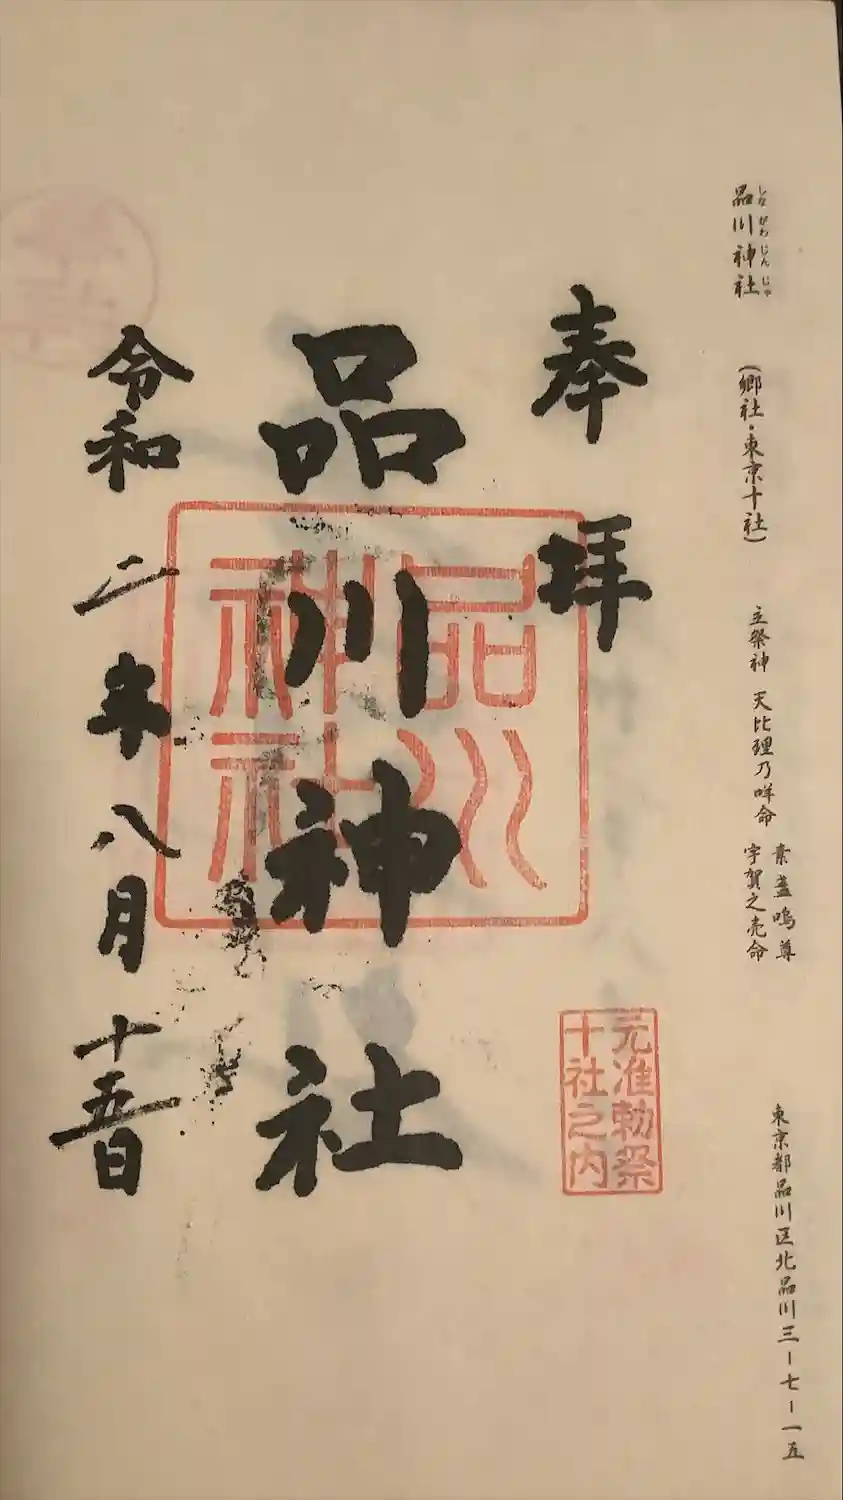 品川神社
しながわじんじゃ
(郷社・東京十社)
主祭神 天比理乃咩命
素盞嗚尊
宇賀之売命
東京都品川区北品川三ー七ー一五
奉拝
元准勅祭
十社之内
品川神社
品川
神社
令和二年八月十五日